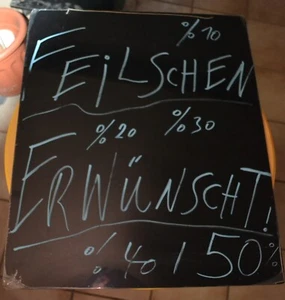 %10
FEILSCHEN
%20 %30
ERWÜNSCHT!
%40 / 50%